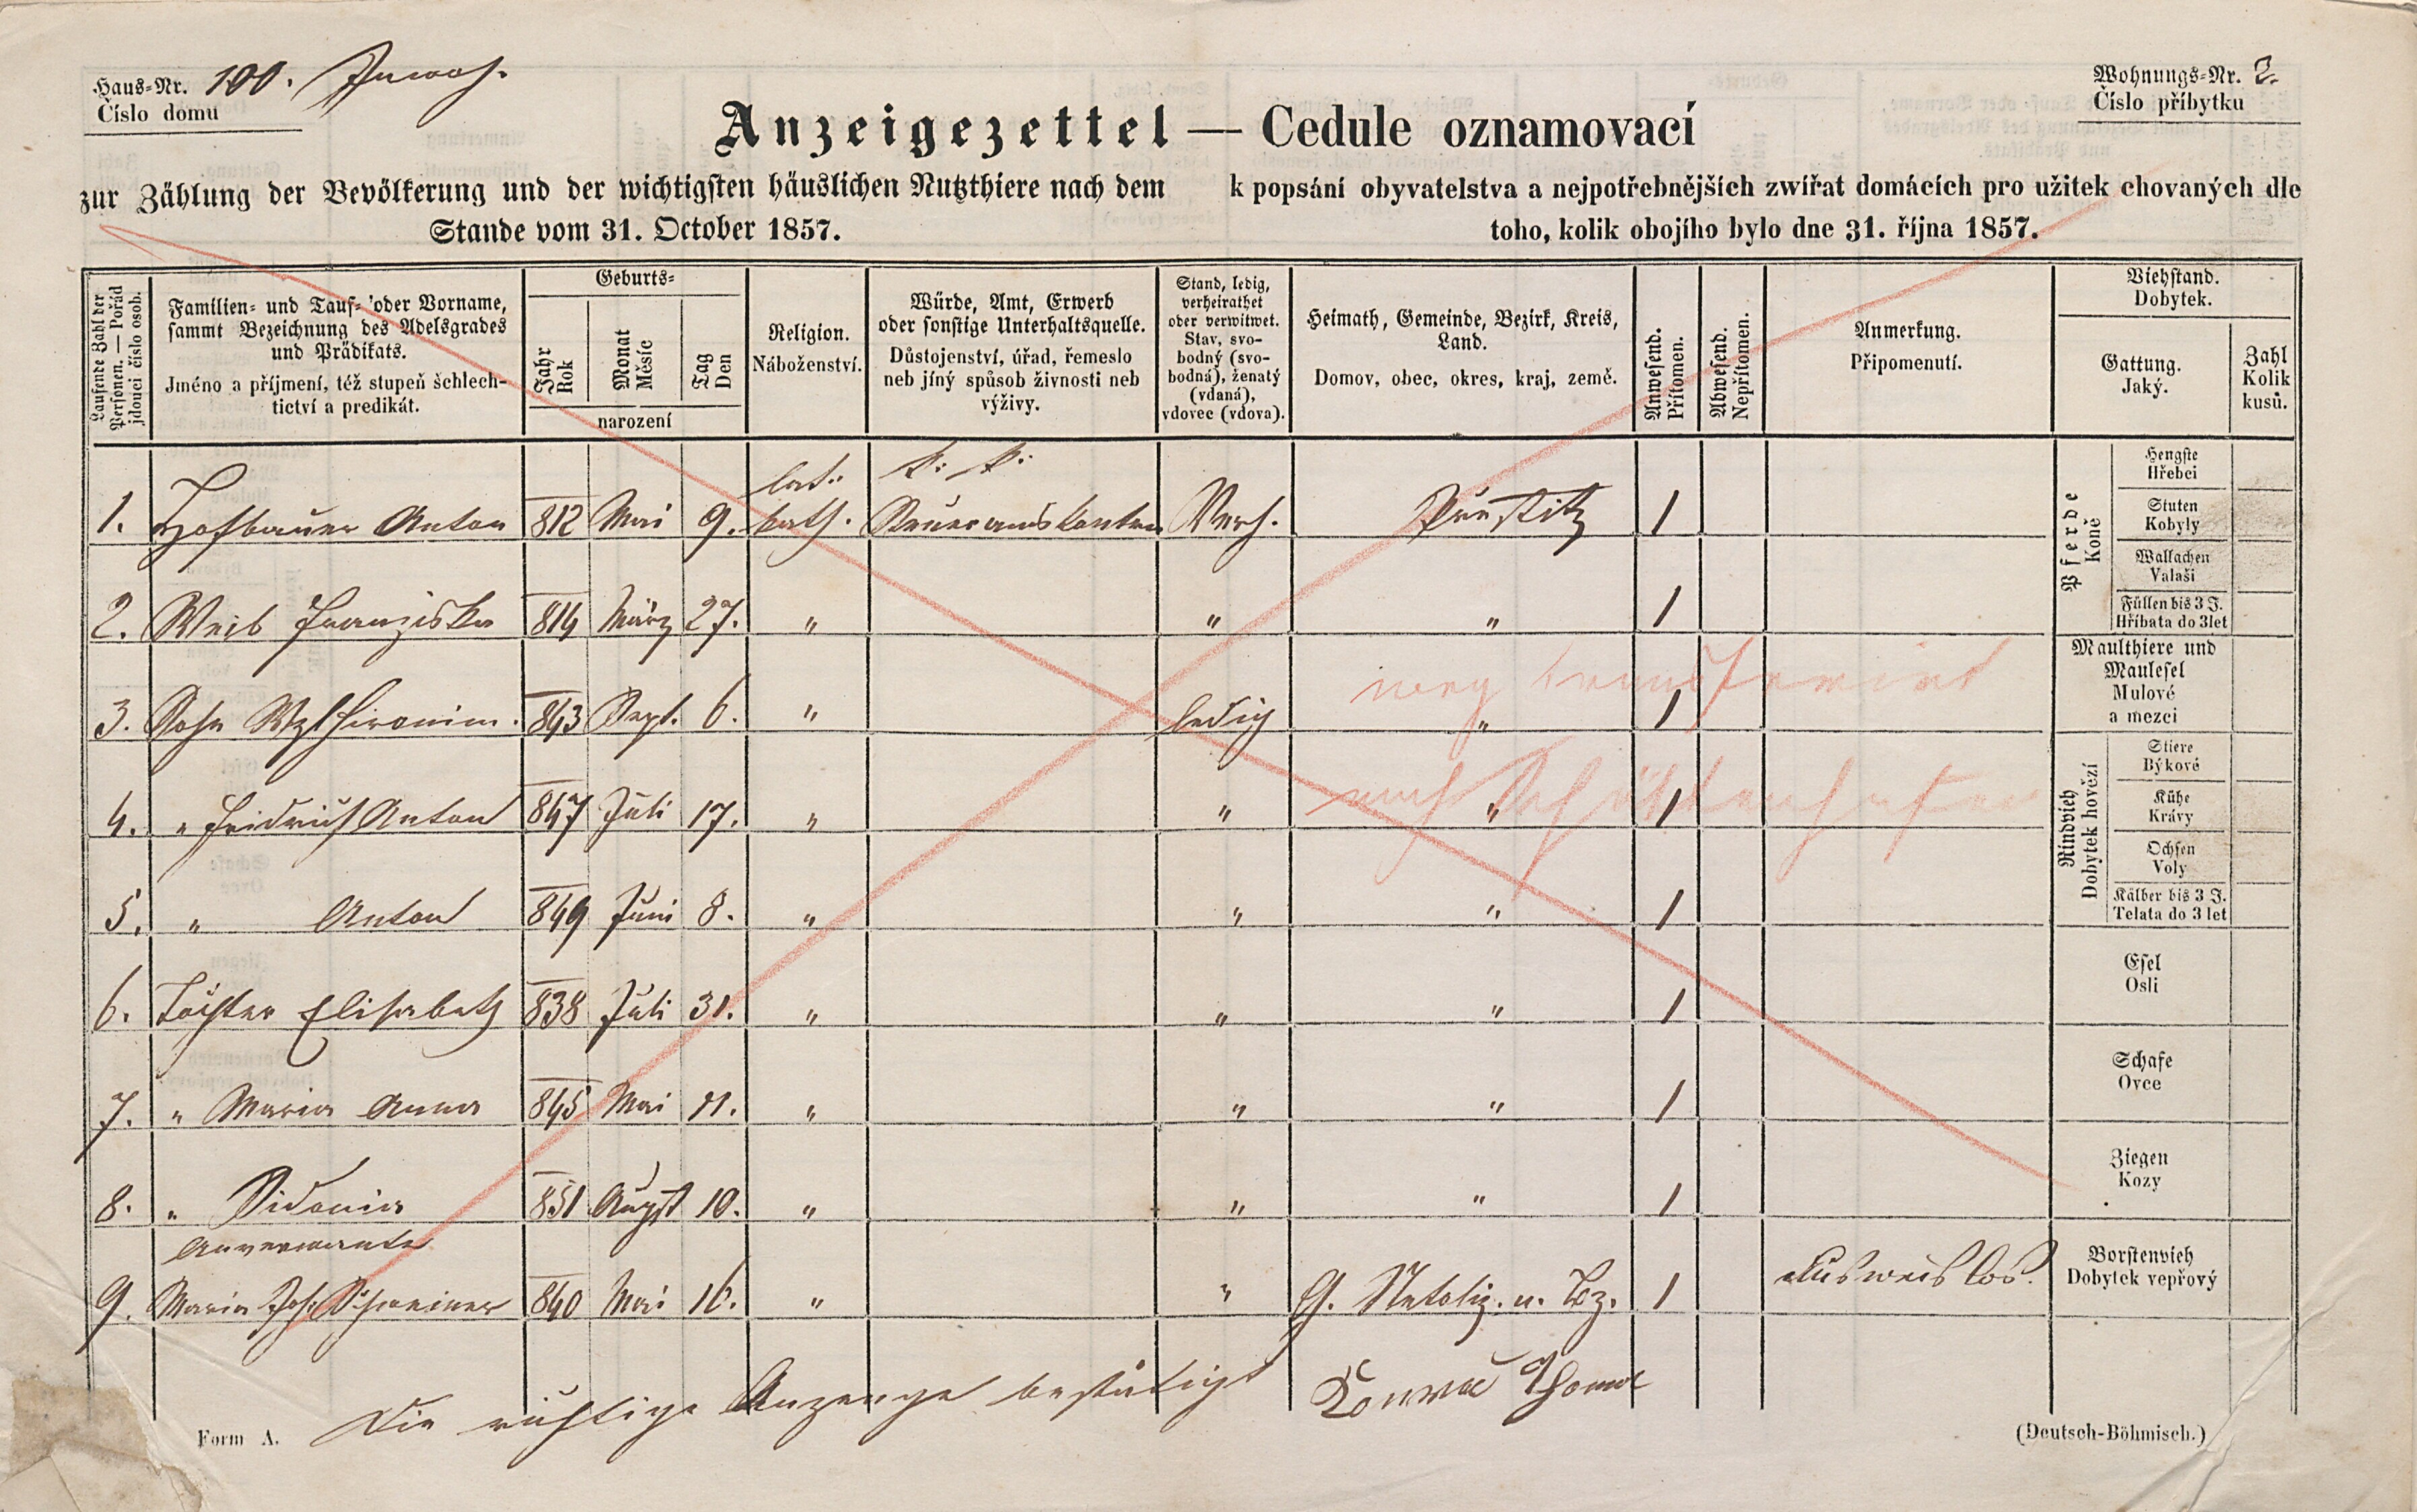 Haus-Nr. 100. Inwoh.
Číslo domu
Wohnungs-Nr. 2.
Číslo příbytku
Anzeigezettel — Cedule oznamovací
zur Zählung der Bevölkerung und der wichtigsten häuslichen Nutzthiere nach dem
Stande vom 31. October 1857.
k popsání obyvatelstva a nejpotřebnějších zwířat domácích pro užitek chovaných dle
toho, kolik obojího bylo dne 31. října 1857.
Laufende Zahl der
Personen. — Pořád
jdoucí číslo osob.
Familien- und Tauf- oder Vorname,
sammt Bezeichnung des Adelsgrades
und Prädikats.
Jméno a příjmení, též stupeň šchlech-
tictví a predikát.
Geburts-
Jahr
Rok
Monat
Měsíc
Tag
Den
narození
Religion.
Náboženství.
Würde, Amt, Erwerb
oder sonstige Unterhaltsquelle.
Důstojenství, úřad, řemeslo
neb jíný spůsob živnosti neb
výživy.
Stand, ledig,
verheirathet
oder verwitwet.
Stav, svo-
bodný (svo-
bodná), ženatý
(vdaná),
vdovec (vdova).
Heimath, Gemeinde, Bezirk, Kreis,
Land.
Domov, obec, okres, kraj, země.
Anwesend.
Přítomen.
Abwesend.
Nepřítomen.
Anmerkung.
Připomenutí.
Viehstand.
Dobytek.
Gattung.
Jaký.
Zahl
Kolik
kusů.
lat. k. k.
1. Hofbauer Anton 812 Mai 9. kath. Verh. 1
2. Weib Franziska 814 März 27. " " " 1
weg transferirt
3. Sohn 843 Sept. 6. " ledig " 1
nach Schüttenhofen
4. " Fridrich Anton 847 Juli 17. " " " 1
5. " Anton 849 Juni 8. " " " 1
6. Tochter Elisabeth 838 Juli 31. " " " 1
7. " Maria Anna 845 Mai 11. " " " 1
8. " Sidonia 851 Augst 10. " " " 1
Anverwante
9. Maria Jos. 840 Mai 16. " " G. Netoliz. u. Bz. 1 Ausweislos.
Pferde
Koně
Hengste
Hřebci
Stuten
Kobyly
Wallachen
Valaši
Füllen bis 3 J.
Hříbata do 3 let
Maulthiere und
Maulesel
Mulové
a mezci
Rindvieh
Dobytek hovězí
Stiere
Býkové
Kühe
Krávy
Ochsen
Voly
Kälber bis 3 J.
Telata do 3 let
Esel
Osli
Schafe
Ovce
Ziegen
Kozy
Borstenvieh
Dobytek vepřový
Die richtige Anzeige bestätigt
Form A.
(Deutsch-Böhmisch.)